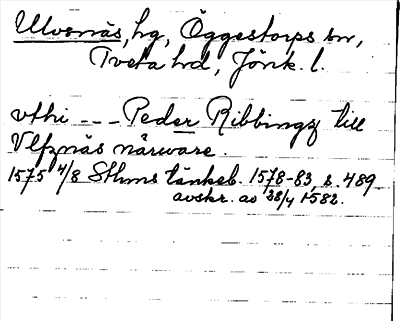 Ulvsnäs, hg, Öggestorps sn,
Tveta hd, Jönk. l.
vthi --- Peder Ribbingz till
Vlfznäs närware.
1575 4/8 Sthms tänkeb. 1578-83, s. 489
avskr. av 28/4 1582.